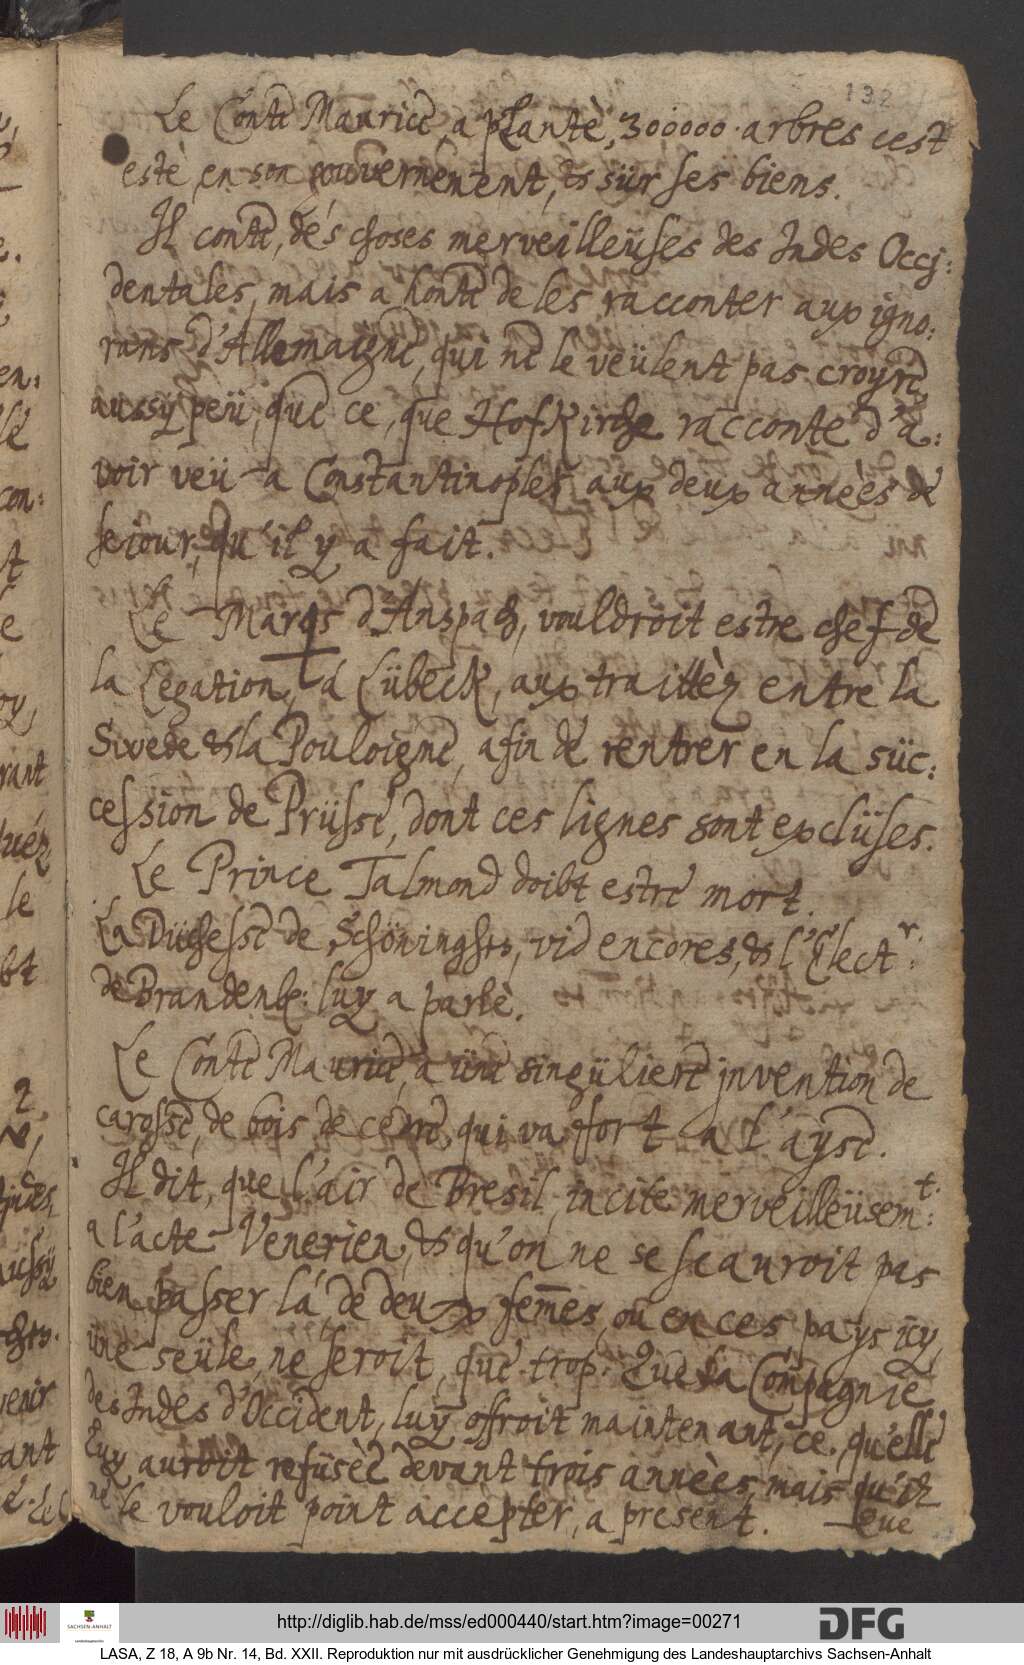 132
Le Conte Maurice, a plantè, 300000. arbres cest
estè, en son gouvernement, & sür ses biens.
Il conte, des choses merveilleüses des Indes Occj:
dentales, mais a honte de les racconter aux igno:
rans d'Allemaigne, qui ne le veülent pas croyre,
aussy peü, que ce, que Hofkirche racconte d'a:
voir veü a Constantinoples, aux deux annèes de
seiour, qu'il y a fait.
Le Marqs d'Anspach, vouldroit estre chef de
la Legation, a Lübeck, aux traittèz entre la
Swede & la Pouloigne, afin de rentrer en la süc:
cession de Prüsse, dont ces lignes sont exclüses.
Le Prince Talmond doibt estre mort.
La Düchesse de Schöninghen, vid encores, & l'Elect.r
de Brandenb: luy a parlè.
Le Conte Maurice, a üne singüliere jnvention de
carosse, de bois de cedre, qui va fort a l'ayse.
Il dit, que l'air de Bresil, incite merveilleüsem:t
a l'acte Venerien, & qu'on ne se scauroit pas
bien passer là, de deux fem̄es, ou en ces pays icy,
üne seüle, ne seroit, que trop. Que la Compagnie
des Indes d'Occident, luy offroit maintenant, ce, qu'elle
luy auroit refüsèe devant trois annèes, mais qu'il
ne le vouloit point accepter, a present.
http://diglib.hab.de/mss/ed000440/start.htm?image=00271
DFG
SACHSEN-ANHALT
LASA, Z 18, A 9b Nr. 14, Bd. XXII. Reproduktion nur mit ausdrücklicher Genehmigung des Landeshauptarchivs Sachsen-Anhalt